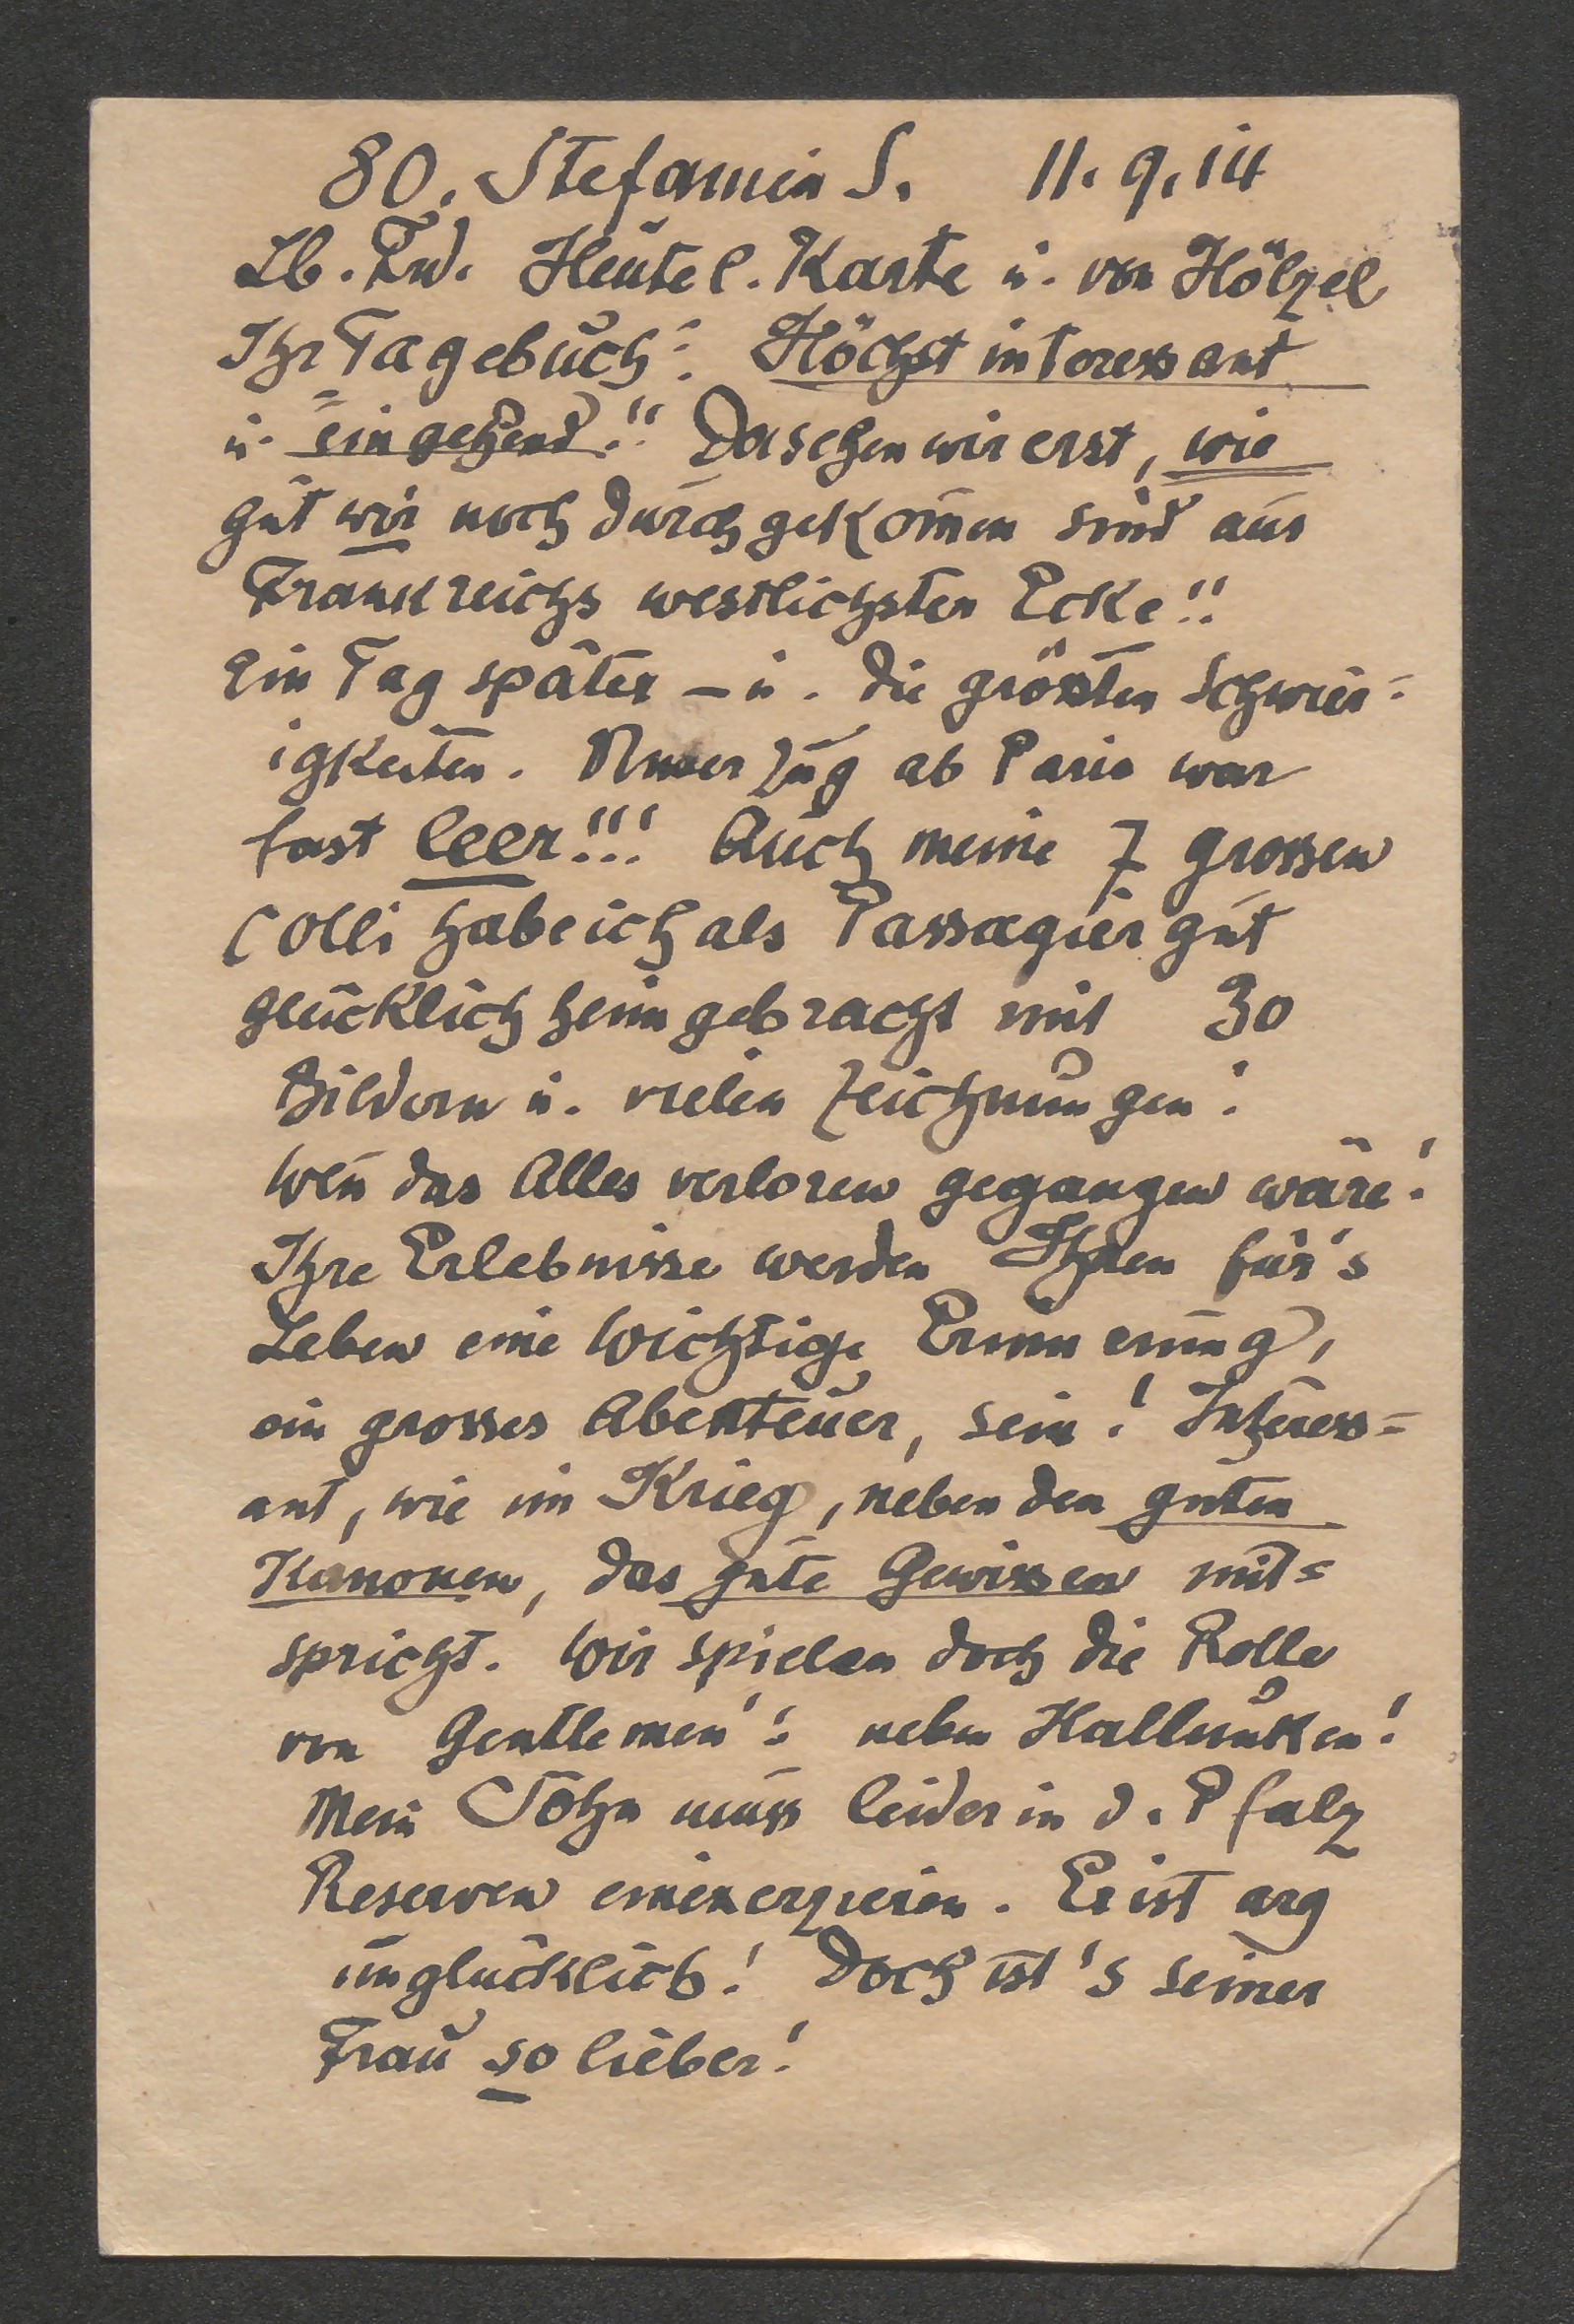 80. Stefanien S. 11.9.14
Lb. Frd. Heute l. Karte u. von Hölzel
Ihr Tagebuch! Höchst interessant
u. eingehend!! Da sehen wir erst, wie
gut wir noch durchgekom̄en sind aus
Frankreichs westlichsten Ecke!!
Ein Tag später – u. die grössten Schwier=
igkeiten. Unser Zug ab Paris war
fast leer!!! Auch meine 7 grossen
Colli habe ich als Passagiergut
glücklich heimgebracht mit 30
Bildern u. vielen Zeichnungen!
Wen̄ das Alles verloren gegangen wäre!
Ihre Erlebnisse werden Ihnen für's
Leben eine wichtige Erinnerung,
ein grosses Abenteuer, sein! Interess=
ant, wie im Krieg, neben den guten
Kanonen, das gute Gewissen mit=
spricht. Wir spielen doch die Rolle
von Gentlemen!! neben Hallunken!
Mein Sohn muss leider in d. Pfalz
Reserven einexerzieren. Er ist arg
unglücklich! Doch ist's seiner
Frau so lieber!